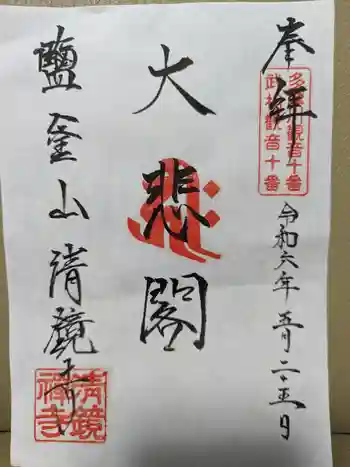 奉拝
多摩川観音十番
武相観音十番
令和六年五月二十五日
大悲閣
鹽釜山清鏡寺
清鏡禅寺